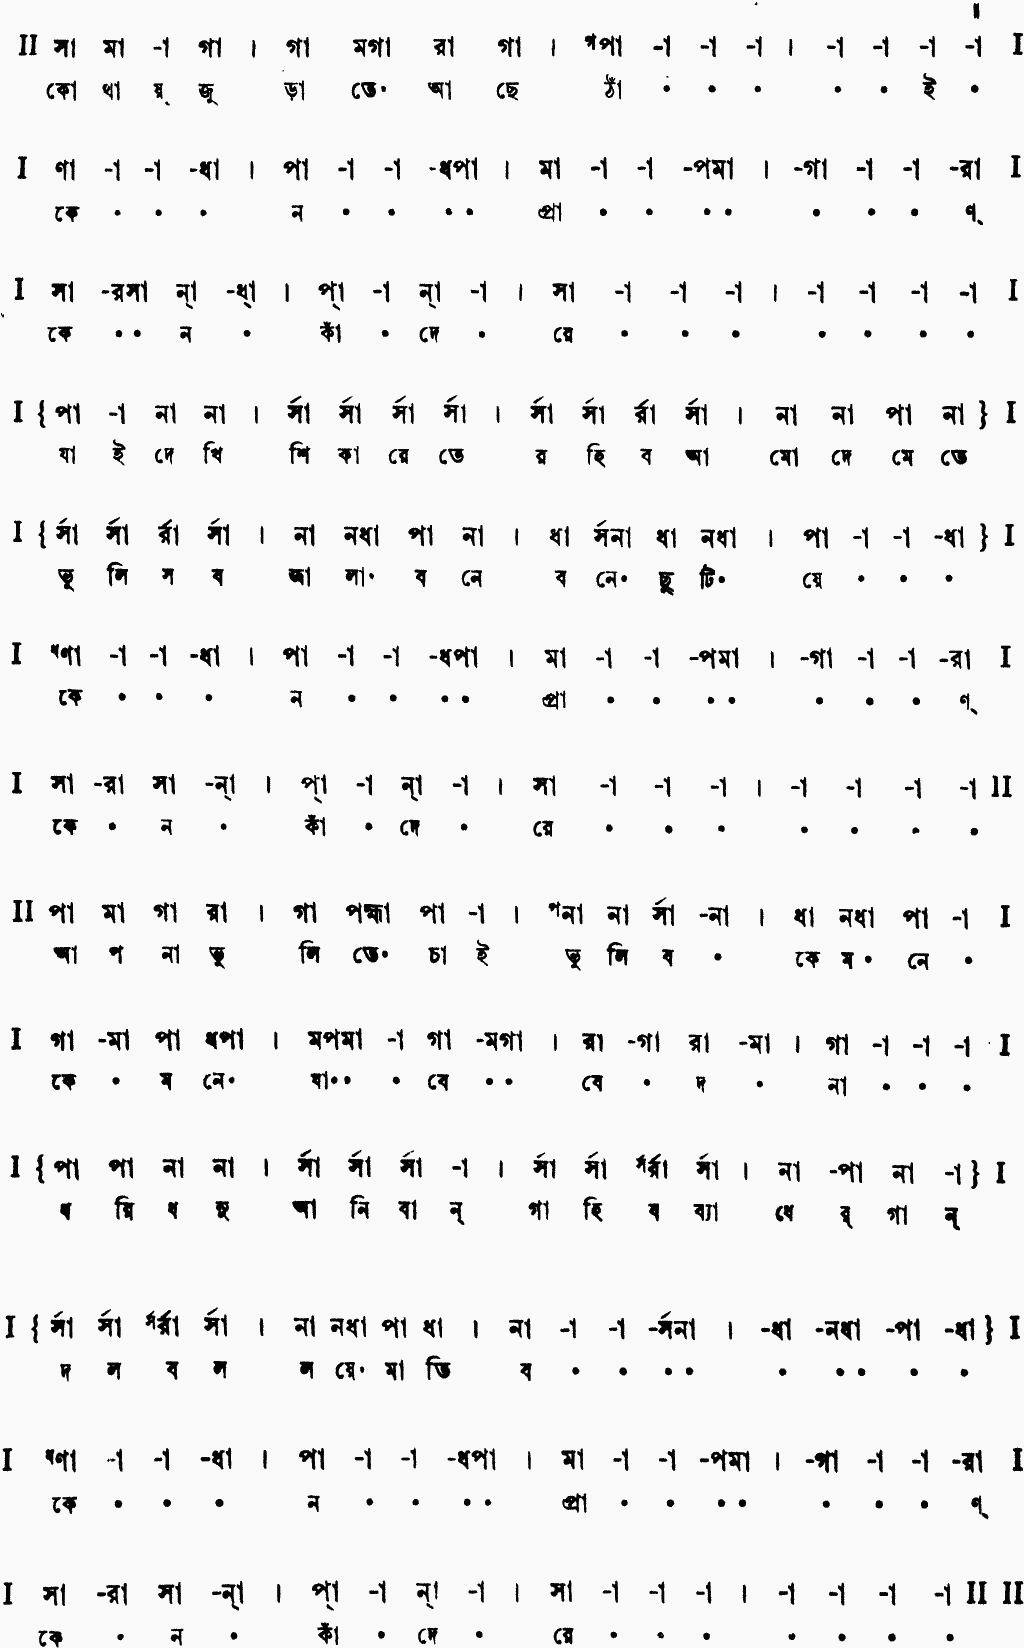 ॥
II সা মা -া গা । গা মগা রা গা । ᵖপা -া -া -া । -া -া -া -া I
কো থা য়্ জু ড়া তে• আ ছে ঠাঁ • • • • • ই •
I ণা -া -া -ধা । পা -া -া -ধপা । মা -া -া -পমা । -গা -া -া -রা I
কে • • • ন • • •• প্রা • • •• • • • ণ্
I সা -রসা ন্‌া -ধ্‌া । প্‌া -া ন্‌া -া । সা -া -া -া । -া -া -া -া I
কে •• ন • কাঁ • দে • রে • • • • • • •
I { পা -া না না । র্সা র্সা র্সা র্সা । র্সা র্সা র্রা র্সা । না না পা না } I
যা ই দে খি শি কা রে তে র হি ব আ মো দে মে তে
I { র্সা র্সা র্রা র্সা । না নধা পা না । ধা র্সনা ধা নধা । পা -া -া -ধা } I
ভু লি স ব জ্বা লা• ব নে ব নে• ছু টি• য়ে • • •
I ᶲণা -া -া -ধা । পা -া -া -ধপা । মা -া -া -পমা । -গা -া -া -রা I
কে • • • ন • • •• প্রা • • •• • • • ণ্
I সা -রা সা -ন্‌া । প্‌া -া ন্‌া -া । সা -া -া -া । -া -া -া -া II
কে • ন • কাঁ • দে • রে • • • • • • •
II পা মা গা রা । গা পহ্মা পা -া । ᵖনা না র্সা -না । ধা নধা পা -া I
আ প না ভু লি তে• চা ই ভু লি ব • কে ম• নে •
I গা -মা পা ধপা । মপমা -া গা -মগা । রা -গা রা -মা । গা -া -া -া I
কে • ম নে• যা•• • বে •• বে • দ • না • • •
I { পা পা না না । র্সা র্সা র্সা -া । র্সা র্সা র্সর্রা র্সা । না -পা না -া } I
ধ রি ধ নু আ নি বা ন্ গা হি ব ব্যা ধে র্ গা ন্
I { র্সা র্সা র্সর্রা র্সা । না নধা পা ধা । না -া -া -র্সনা । -ধা -নধা -পা -ধা } I
দ ল ব ল ল য়ে• মা তি ব • • •• • •• • •
I ধণা -া -া -ধা । পা -া -া -ধপা । মা -া -া -পমা । -গা -া -া -রা I
কে • • • ন • • •• প্রা • • •• • • • ণ্
I সা -রা সা -ন্‌া । প্‌া -া ন্‌া -া । সা -া -া -া । -া -া -া -া II II
কে • ন • কাঁ • দে • রে • • • • • • •